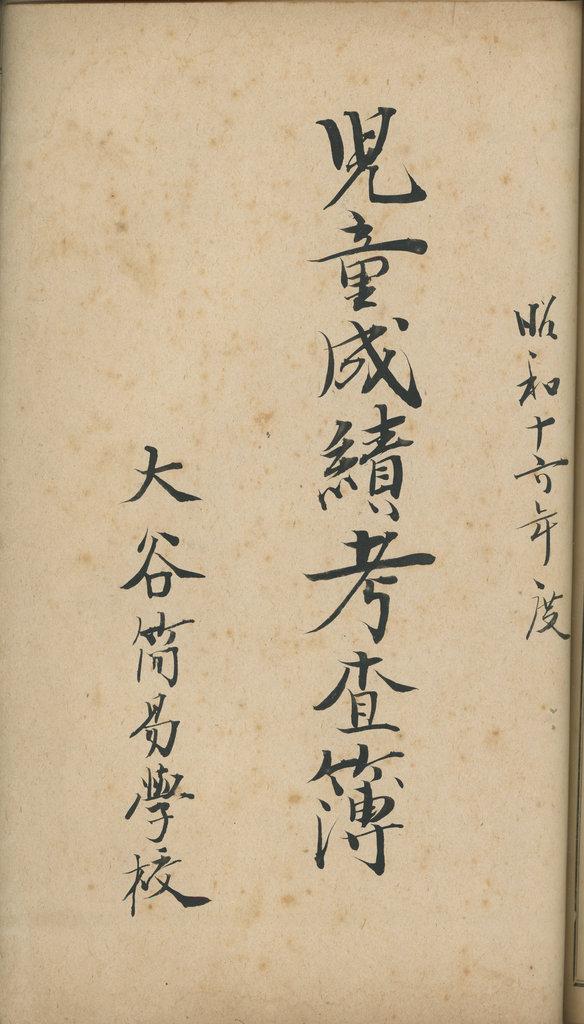 昭和十六年度
児童成績考査簿
大谷簡易學校